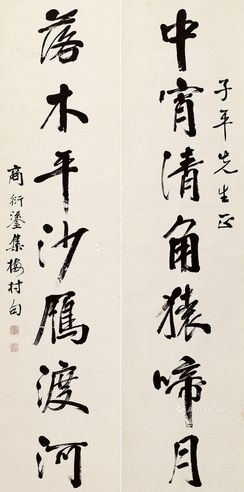 子平先生正
中宵清角猿啼月
落木平沙雁渡河
商衍鎏集梅村句